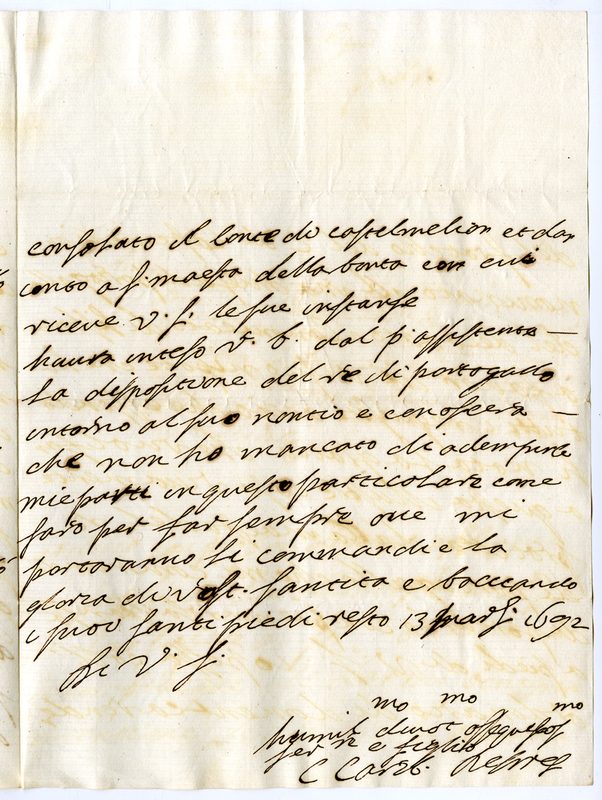 consolato il conte di castelmelion et dar
conto a s. maesta della bonta con cui
riceve v. s. le sue instanse
haura inteso v. b. dal p. assistente —
la dispositione del re di portogallo
intorno al suo nontio e conoscera —
che non ho mancato di adempire
mie parti in questo particolare come
faro per far sempre oue mi
portaranno li commandi e la
gloria di vost. santita e bacciando
i suoi santi piedi resto 13 marſ. 1692
Di V. S.
humil.mo devot.mo ossequios.mo
ser.re e figlio
C Card.